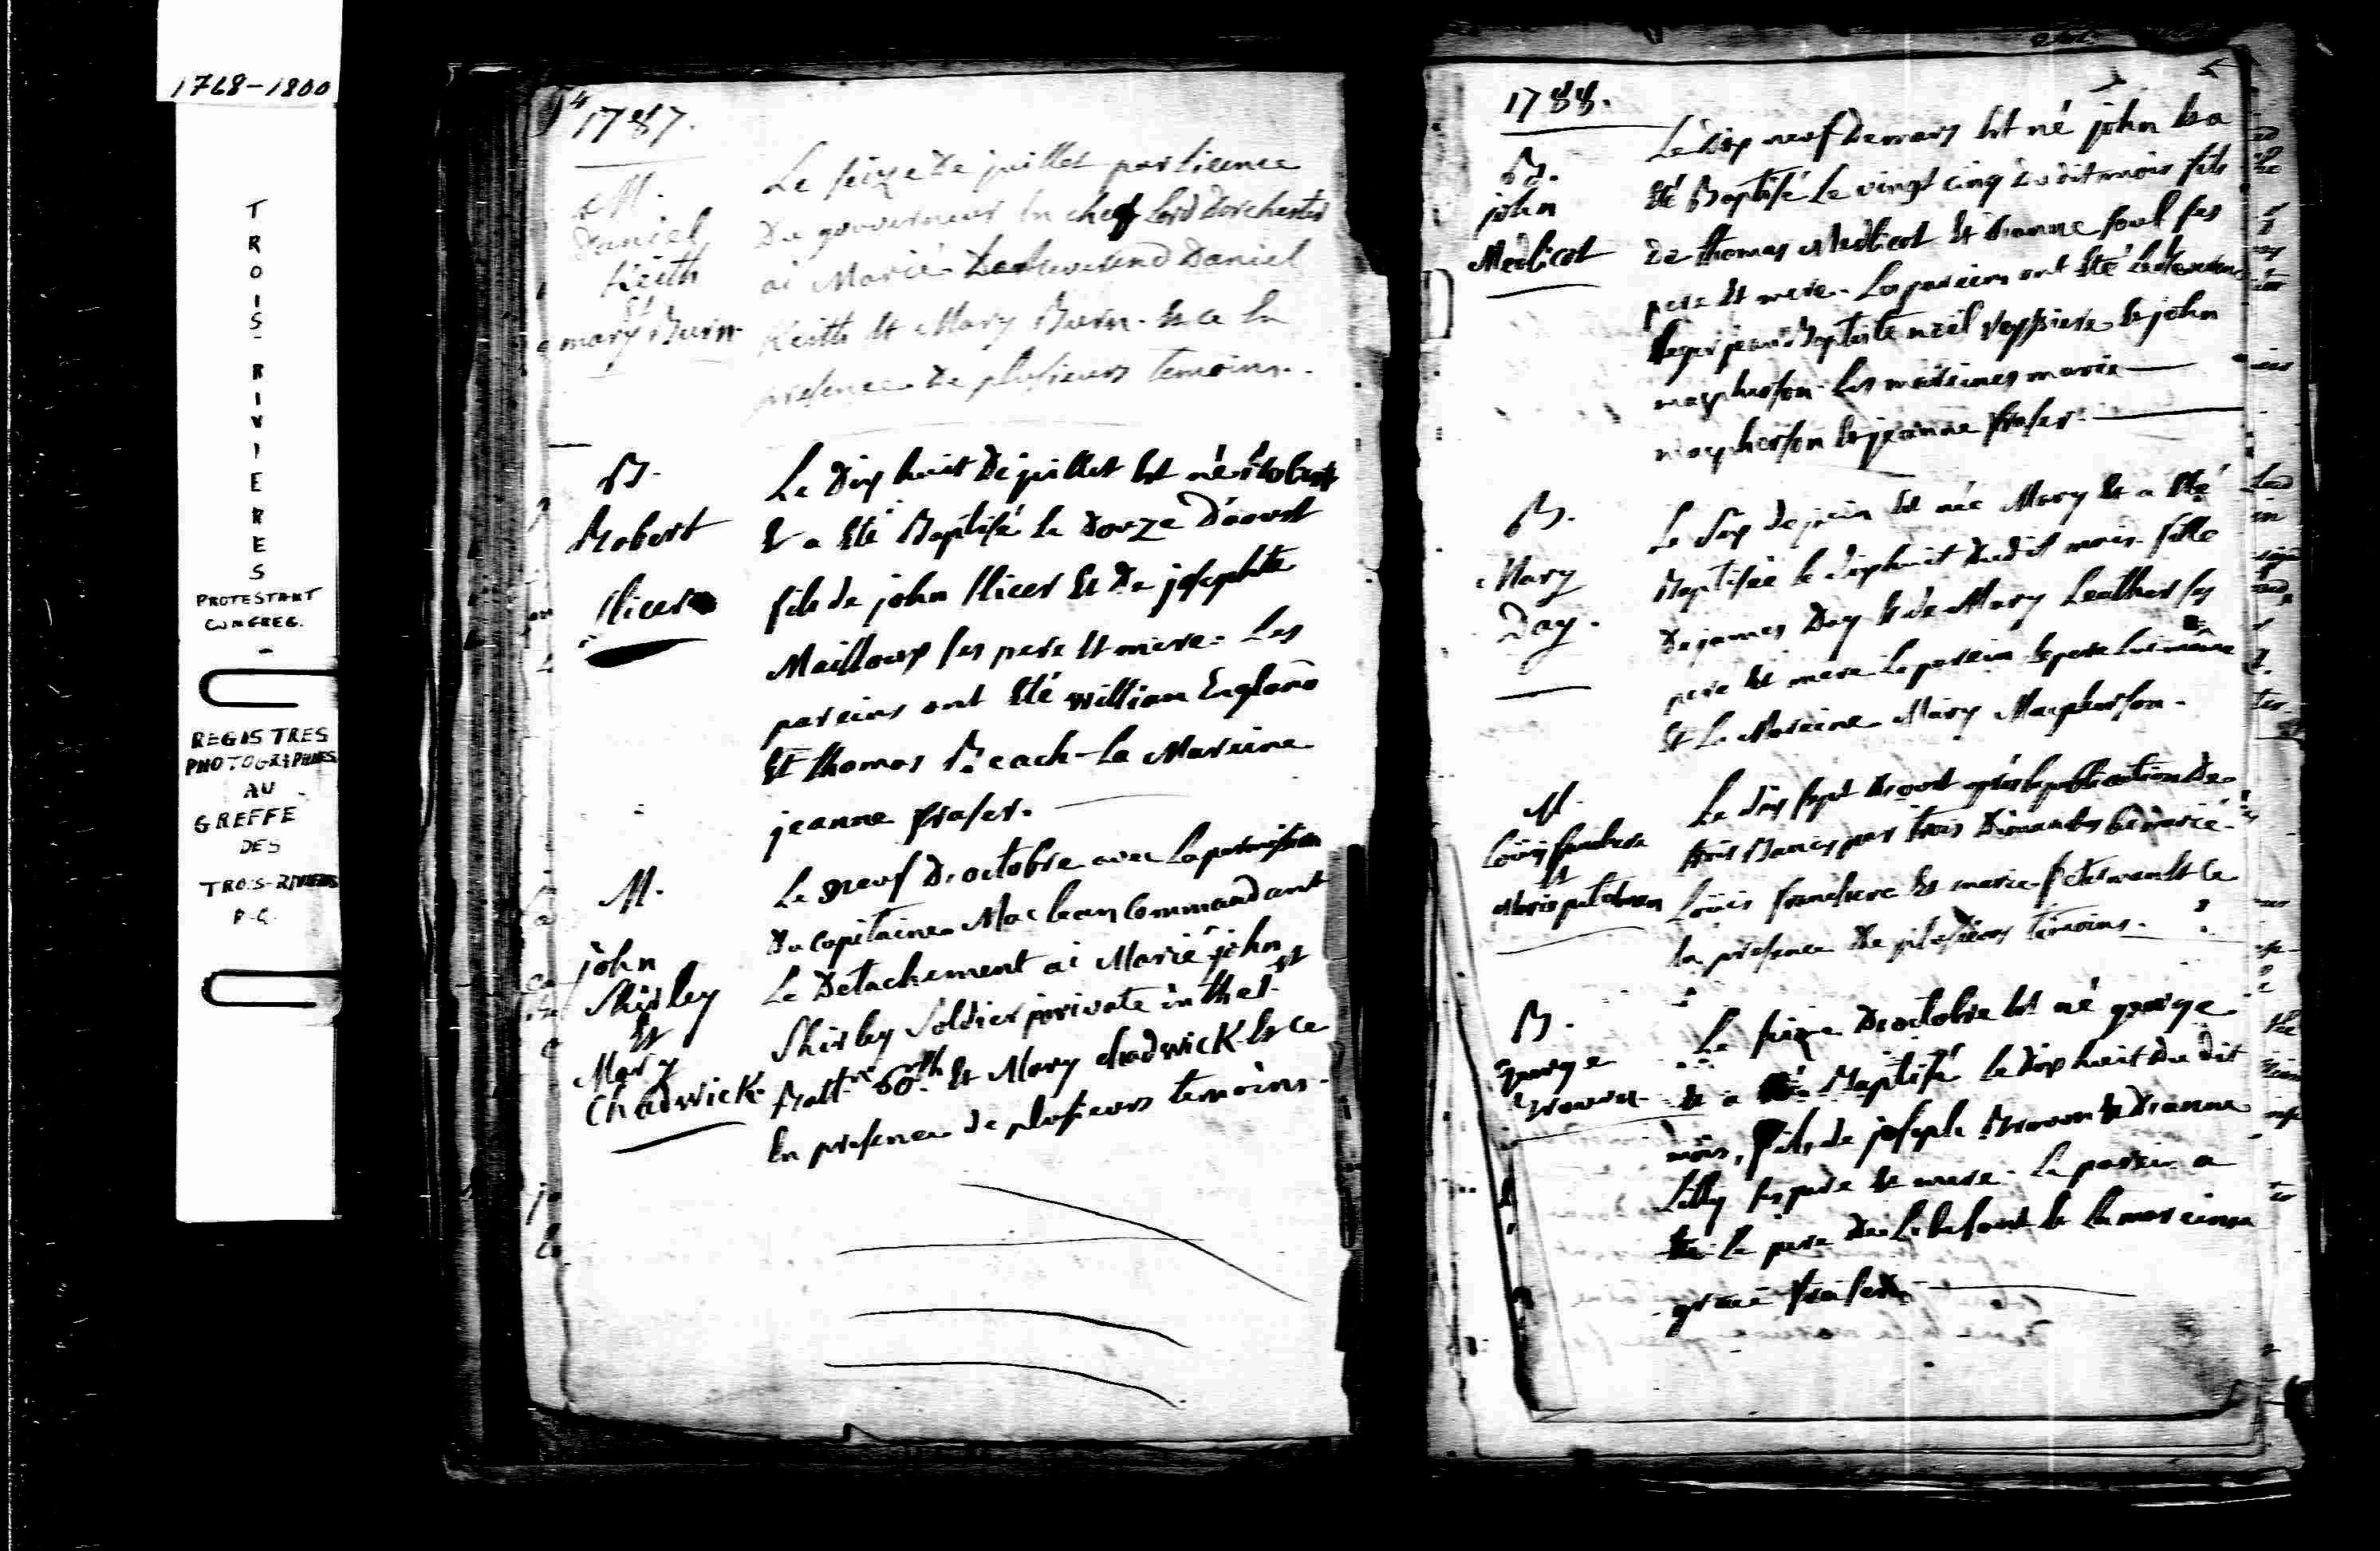 1768-1800
TROIS-RIVIERES
PROTESTANT
CONGREG.
REGISTRES
PHOTOGRAPHIES
AU
GREFFE
DES
TROIS-RIVIERES
P.Q.
1787.
M.
Daniel
Keith
Et
mary Burn
Le seize De juillet par licence
Du gouverneur En chef Lord Dorchester
ai Marié Le Reverend Daniel
Keith Et Mary Burn. Et ce En
presence De plusieurs temoins.
B.
Robert
Slicer
Le Dix huit De juillet Est né Robert
Et a Eté Baptisé le Douze D'aoust
fils de john Slicer Et De josephte
Mailloux ses pere Et mere. Les
pareins ont Eté william England
Et thomas Beach - La Mareine
jeanne fraser.
M.
john
Shirley
Et
Mary
Chadwick
Le Neuf D'octobre avec La permission
Du capitaine Maclean Commandant
Le Detachement ai Marié john
Shirley Soldier private in the 1st
Batt.n 60th Et Mary chadwick Et ce
En presence de plusieurs temoins.
1788.
B.
john
Medlicot
Le Dix neuf De mars Est né john Et a
Eté Baptisé Le vingt cinq Du dit mois fils
De thomas Medlicot Et ses
pere Et mere. Les pareins ont Eté
jean Baptiste noël Et john
macpherson. Les mareines marie
macpherson Et jeanne fraser.
B.
Mary
Day.
Le Six de juin Est née Mary Et a Eté
Baptisée le dix huit Dudit mois. fille
De james Day Et de Mary Leather ses
pere Et mere Le parein Le pere Lui même
Et La Mareine Mary Macpherson.
M.
Louis franchere
Et
Le dix sept D'aout après la publication De
trois Bancs par trois Dimanches Ai marié
Louis franchere Et marie Et Ce
En presence De plusieurs temoins.
B.
george
Brown
Le seize D'octobre Est né george
Et a Eté Baptisé Le Dix huit Du dit
mois, fils de joseph Brown Et Dianne
Libby ses pere Et mere. Le parein a
Eté Le pere De L'enfant Et La mareine
grace fraser.